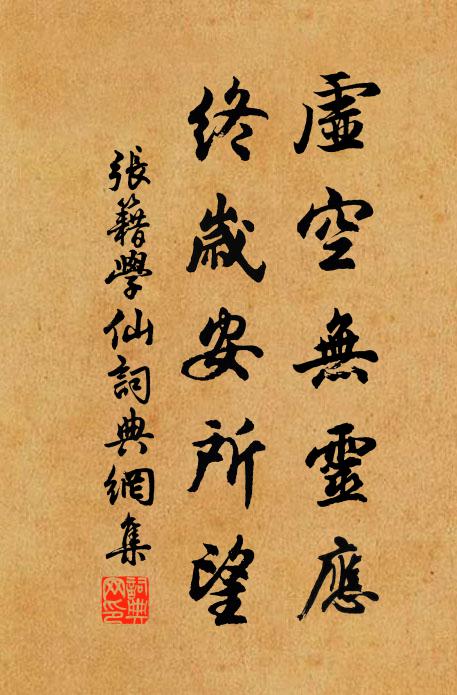 虛空無靈應
終歲安所望
張籍學仙詞典網集
詞典網印